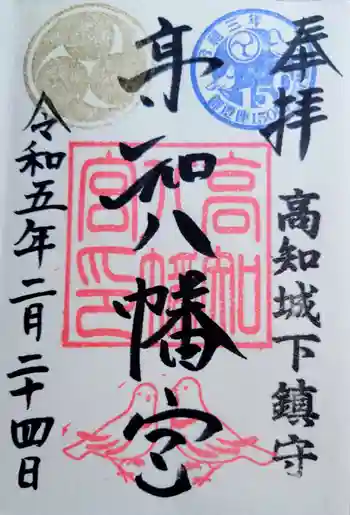 奉拝
高知城下鎮守
高知八幡宮
高知
八幡
宮印
令和三年
150
令和五年二月二十四日